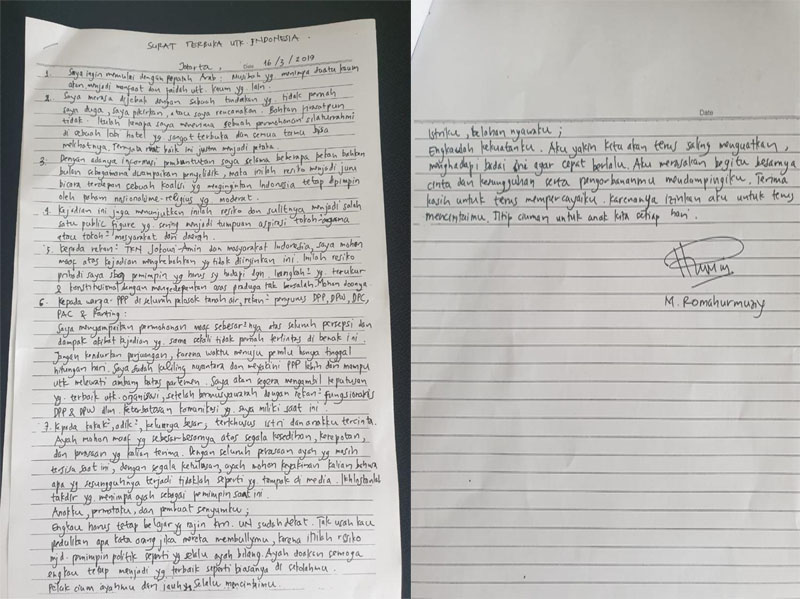 SURAT TERBUKA UTK INDONESIA.
Jakarta, Date 16/3/2019
1. Saya ingin memulai dengan pepatah Arab: Musibah yg. menimpa suatu kaum
akan menjadi manfaat dan faidah utk. kaum yg. lain.
2. Saya merasa dijebak dengan sebuah tindakan yg. tidak pernah
saya duga, saya pikirkan, atau saya rencanakan. Bahkan firasatpun
tidak. Itulah kenapa saya menerima sebuah permohonan silaturrahmi
di sebuah lobi hotel yg sangat terbuka dan semua tamu bisa
melihatnya. Ternyata niat baik ini justru menjadi petaka.
3. Dengan adanya informasi pembuntutan saya selama beberapa pekan bahkan
bulan sebagaimana disampaikan penyelidik, maka inilah resiko menjadi juru
bicara terdepan sebuah koalisi yg menginginkan Indonesia tetap dipimpin
oleh paham nasionalisme-religius yg moderat.
4. Kejadian ini juga menunjukkan inilah resiko dan sulitnya menjadi salah
satu public figure yg sering menjadi tumpuan aspirasi tokoh-agama
atau tokoh² masyarakat dari daerah.
5. Kepada rekan² TKN Jokowi-Amin dan masyarakat Indonesia, saya mohon
maaf atas kejadian menghebohkan yg tidak diinginkan ini. Inilah resiko
pribadi saya sbg pemimpin yg harus sy hadapi dgn langkah² yg terukur
& konstitusional dengan mengedepankan asas praduga tak bersalah. Mohon doanya.
6. Kepada warga PPP di seluruh pelosok tanah air, rekan² pengurus DPP, DPW, DPC,
PAC & Ranting:
Saya menyampaikan permohonan maaf sebesar²nya atas seluruh persepsi dan
dampak akibat kejadian yg. sama sekali tidak pernah terlintas di benak ini.
Jangan kendurkan perjuangan, karena waktu menuju pemilu hanya tinggal
hitungan hari. Saya sudah keliling nusantara dan meyakini PPP lebih dari mampu
utk melewati ambang batas parlemen. Saya akan segera mengambil keputusan
yg. terbaik utk. organisasi, setelah bermusyawarah dengan rekan² fungsionaris
DPP & DPW dlm. keterbatasan komunikasi yg. saya miliki saat ini.
7. Kpada kakak², adik², keluarga besar, terkhusus istri dan anakku tercinta.
Ayah mohon maaf yg sebesar-besarnya atas segala kesedihan, kerepotan,
dan perasaan yg kalian terima. Dengan seluruh perasaan ayah yg masih
tersisa saat ini, dengan segala ketulusan, ayah mohon keyakinan kalian bahwa
apa yg sesungguhnya terjadi tidaklah seperti yg tampak di media. Ikhlaskanlah
takdir yg. menimpa ayah sebagai pemimpin saat ini.
Anakku, permataku, dan pembuat senyumku;
Engkau harus tetap belajar yg rajin krn. UN sudah dekat. Tak usah kau
pedulikan apa kata orang jika mereka membullymu, karena inilah resiko
mjd. pemimpin politik seperti yg selalu ayah bilang. Ayah doakan semoga
engkau tetap menjadi yg terbaik seperti biasanya di sekolahmu.
Peluk cium ayahmu dari jauh yg selalu mencintaimu.
Date
Istriku, belahan nyawaku;
Engkaulah kekuatanku. Aku yakin kita akan terus saling menguatkan,
menghadapi badai ini agar cepat berlalu. Aku merasakan begitu besarnya
cinta dan kesungguhan serta pengorbananmu mendampingiku. Terima
kasih untuk terus mempercayaiku. Karenanya izinkan aku untuk terus
mencintaimu. Titip ciuman untuk anak kita setiap hari.
M. Romahurmuziy